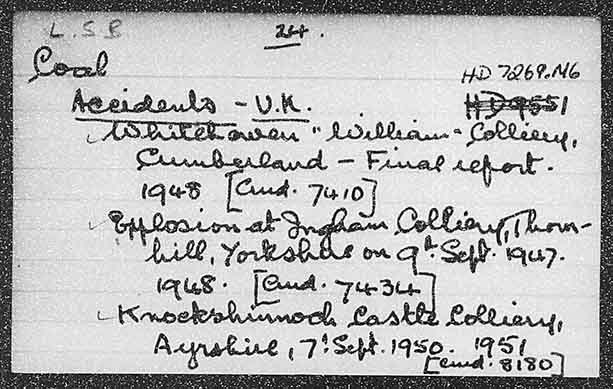 L.S.B 24.
Coal
HD 7269.M6
Accidents - U.K. HD9551
Whitehaven "William" Colliery,
Cumberland - Final report.
1948 [Cmd. 7410]
Explosion at Ingham Colliery, Thorn-
hill, Yorkshire on 9th Sept. 1947.
1948. [Cmd. 7434]
Knockshinnoch Castle Colliery,
Ayrshire, 7th Sept. 1950. 1951
[Cmd. 8180]